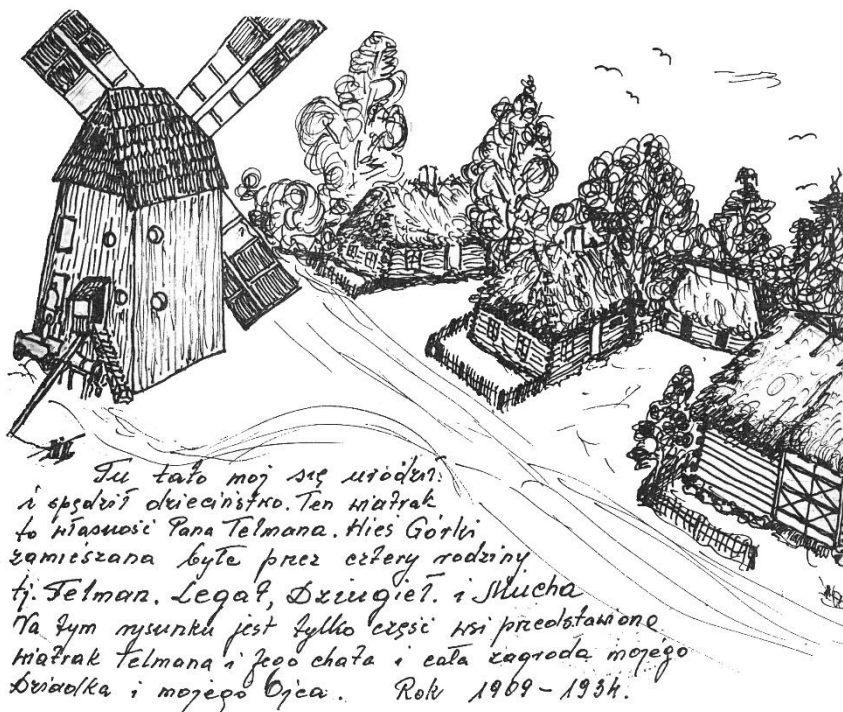 Tu tato moj się urodził.
i spędził dzieciństwo. Ten wiatrak
to własność Pana Telmana. Wieś Górki
zamieszana była przez cztery rodziny
tj. Telman. Legat, Dziugieł. i Mucha
Na tym rysunku jest tylko część wsi przedstawiona
wiatrak Telmana i jego chata i cała zagroda mojego
Dziadka i mojego Ojca. Rok 1909-1934.